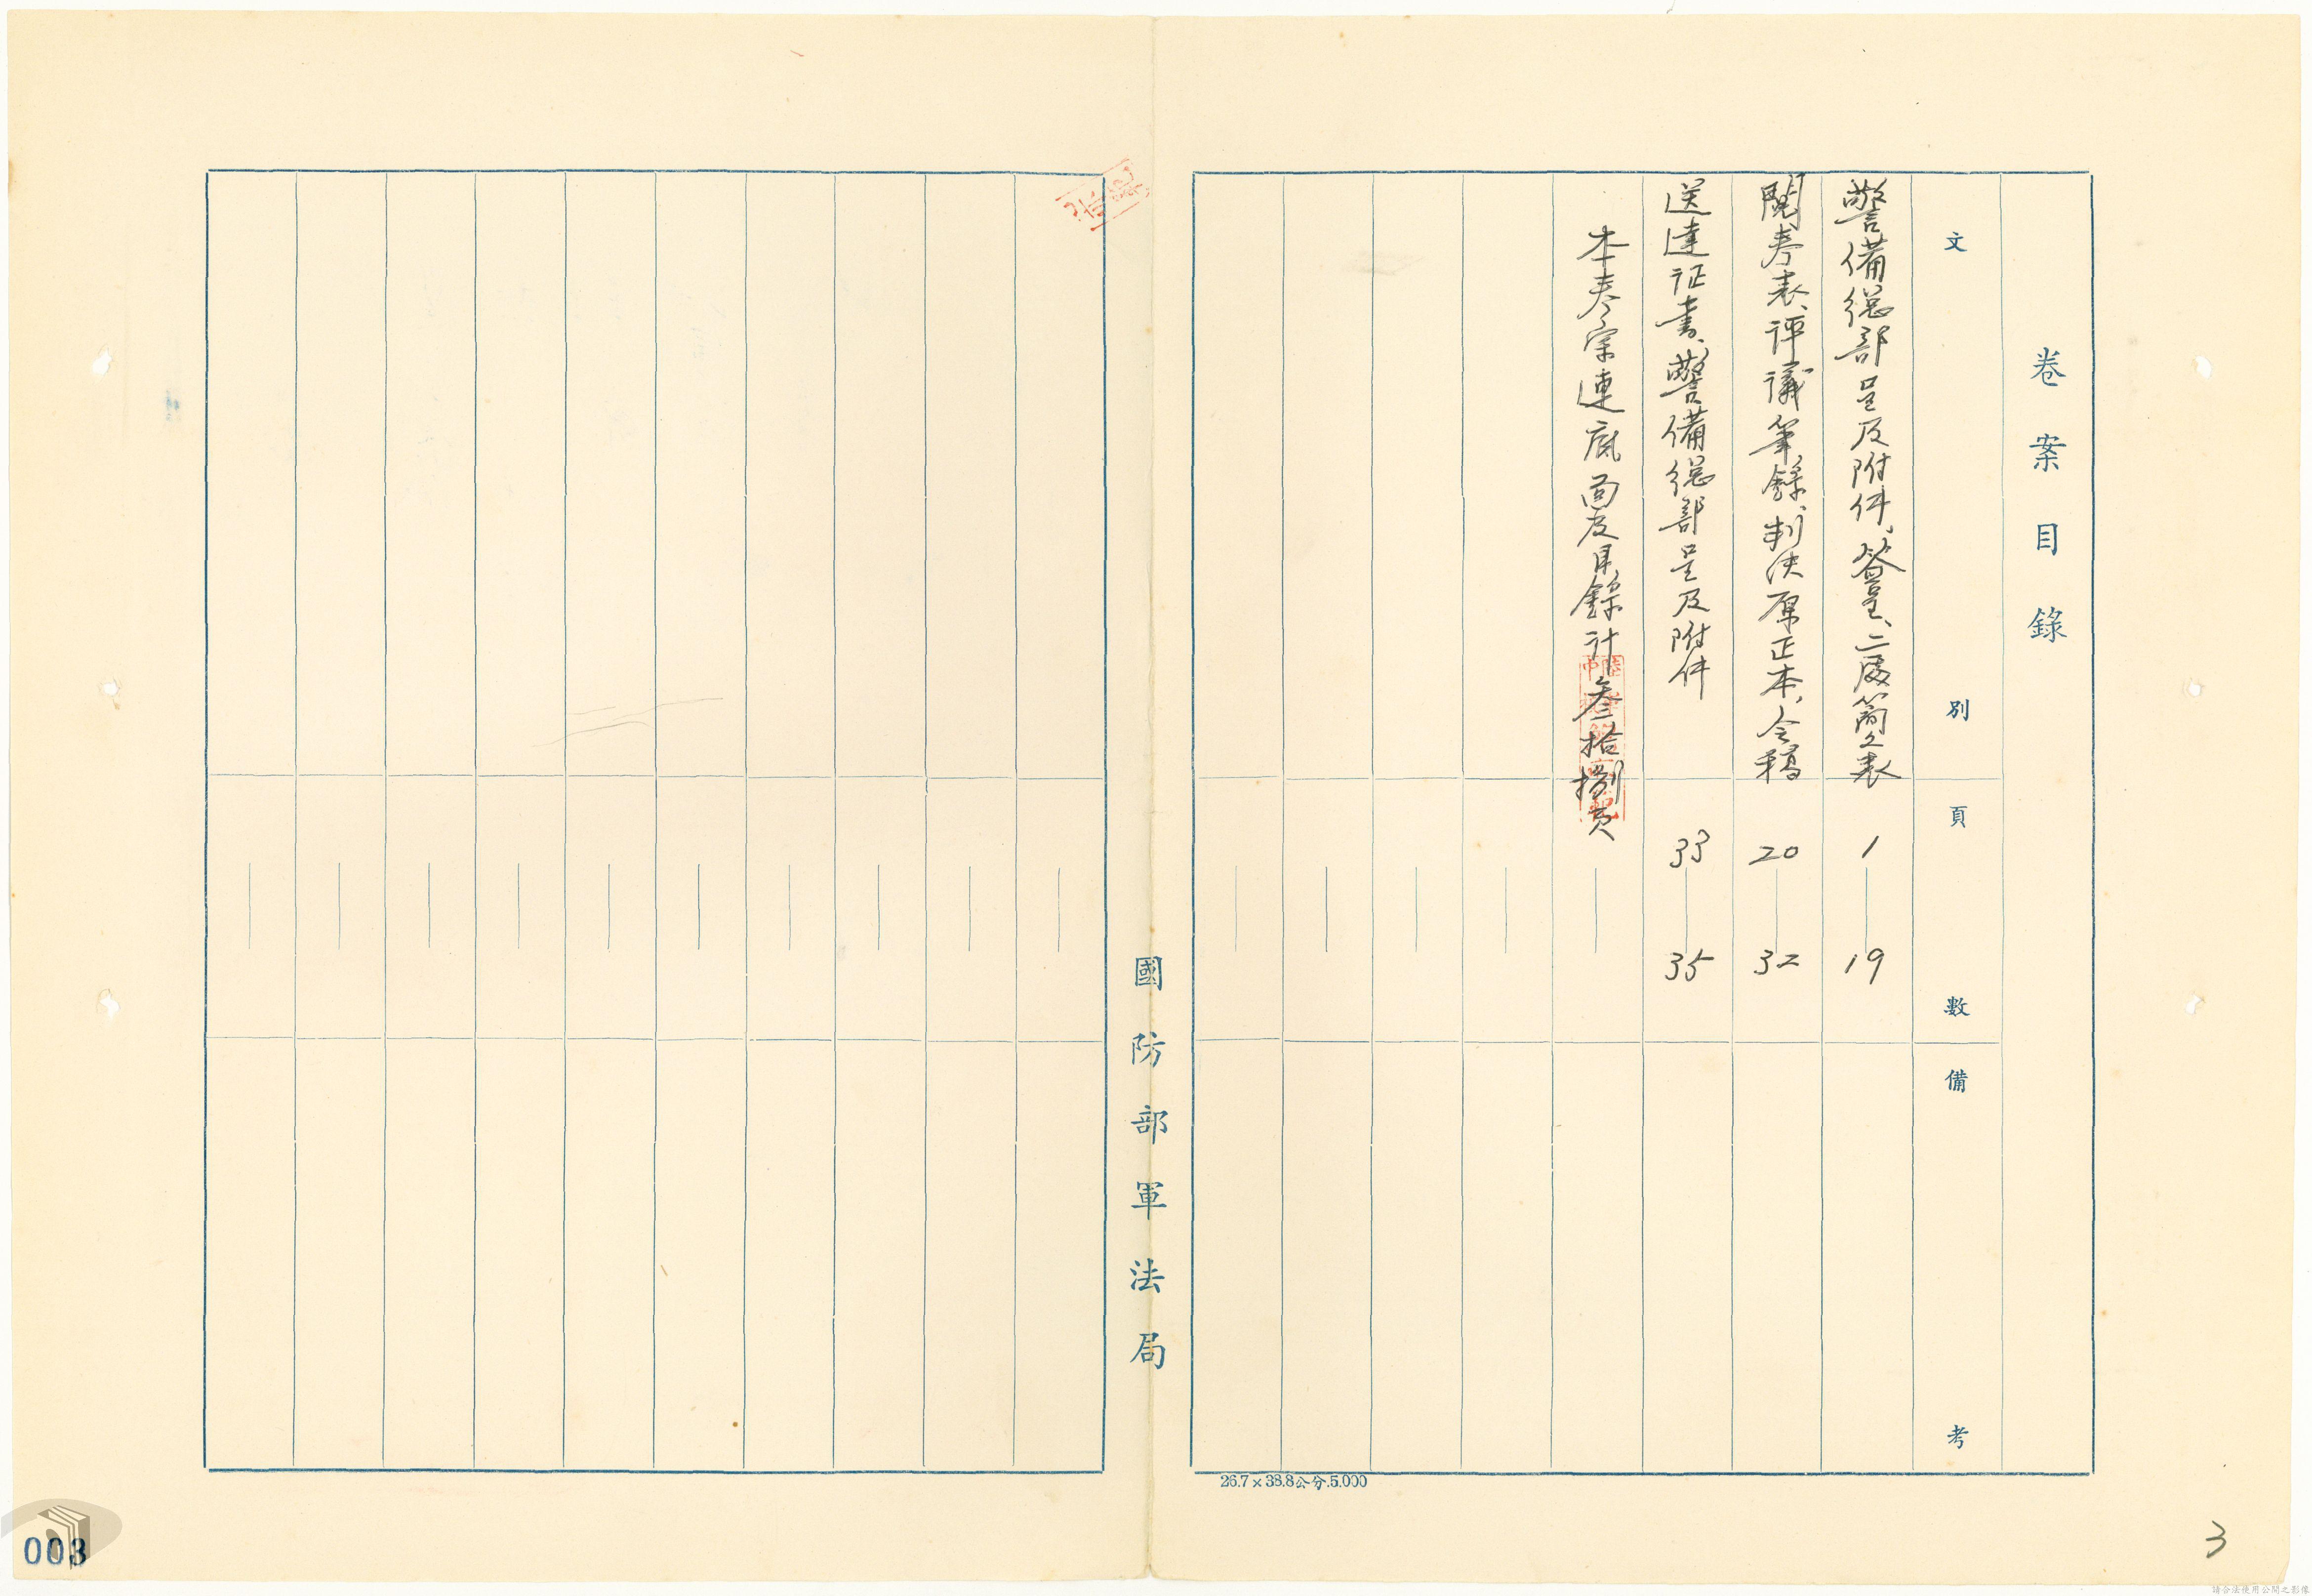 卷案目錄
文別
頁數
備考
警備總部呈及附件、簽呈、二處簡便表
1—19
閱卷表、評議筆錄、判決原正本、令稿
20—32
送達証書、警備總部呈及附件
33—35
本卷宗連底面及目錄計叁拾捌頁
26.7×38.8公分.5.000
國防部軍法局
003
3
請合法使用公開之影像